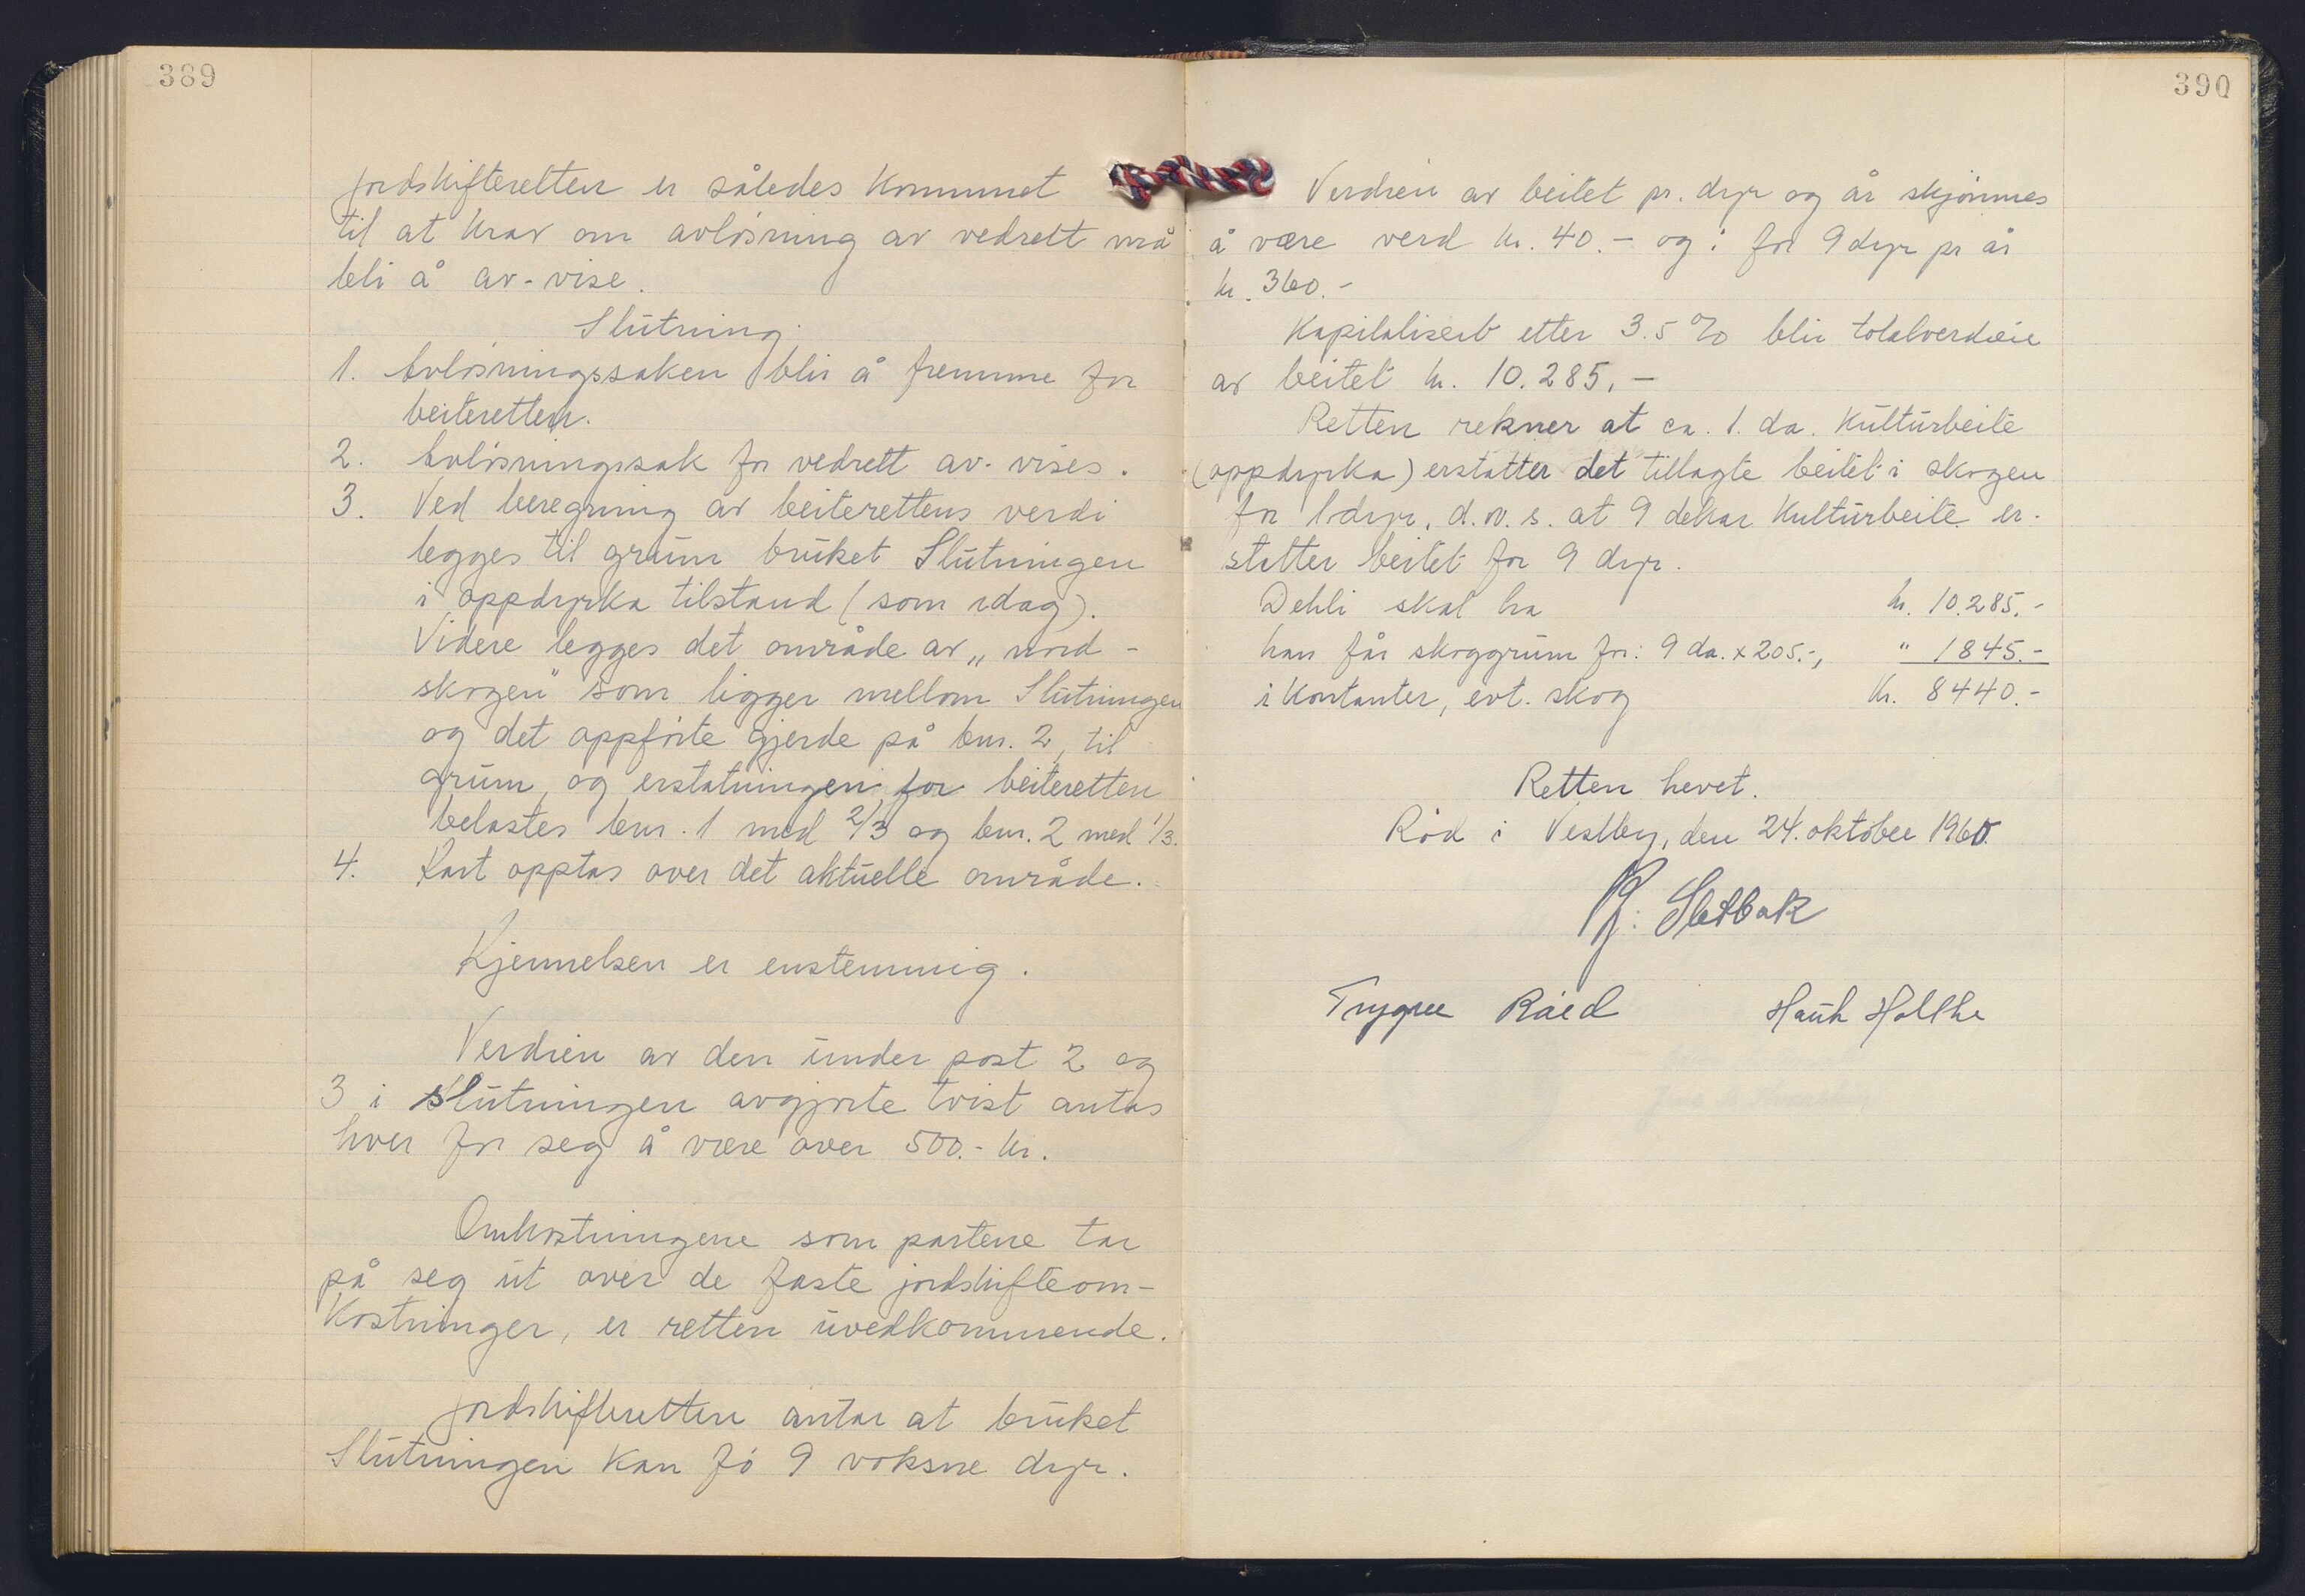 389
Jordskifteretten er således kommet
til at krav om avløsning av vedrett må
bli å av-vise.
Slutning.
1. Avløsningssaken blir å fremme for
beiteretten.
2. Avløsningssak for vedrett av-vises.
3. Ved beregning av beiterettens verdi
legges til grunn bruket Slutningen
i oppdyrka tilstand (som idag).
Videre legges det område av „nord-
skogen" som ligger mellom Slutningen
og det oppførte gjerde på bnr. 2, til
grunn, og erstatningen for beiteretten
belastes bnr. 1 med 2/3 og bnr. 2 med 1/3.
4. Kart opptas over det aktuelle område.
Kjennelsen er enstemmig.
Verdien av den under post 2 og
3 i slutningen avgjorte tvist antas
hver for seg å være over 500.- kr.
Omkostningene som partene tar
på seg ut over de faste jordskifteom-
kostninger, er retten uvedkommende.
Jordskifteretten antar at bruket
Slutningen kan fø 9 voksne dyr.
390
Verdien av beitet pr. dyr og år skjønnes
å være verd kr. 40.- og: for 9 dyr pr år
kr. 360.-
Kapitalisert etter 3.5 % blir totalverdien
av beitet kr. 10.285,-
Retten rekner at ca. 1. da. kulturbeite
(oppdyrka) erstatter det tillagte beitet i skogen
for 1 dyr, d.v.s. at 9 dekar kulturbeite er-
statter beitet for 9 dyr.
Dehli skal ha kr. 10.285.-
han får skoggrunn for: 9 da. x 205.-, " 1845.-
i kontanter, evt. skog kr. 8440.-
Retten hevet.
Rød i Vestby, den 24. oktober 1960.
Sletbak
Trygve Røed Hauk Holthe